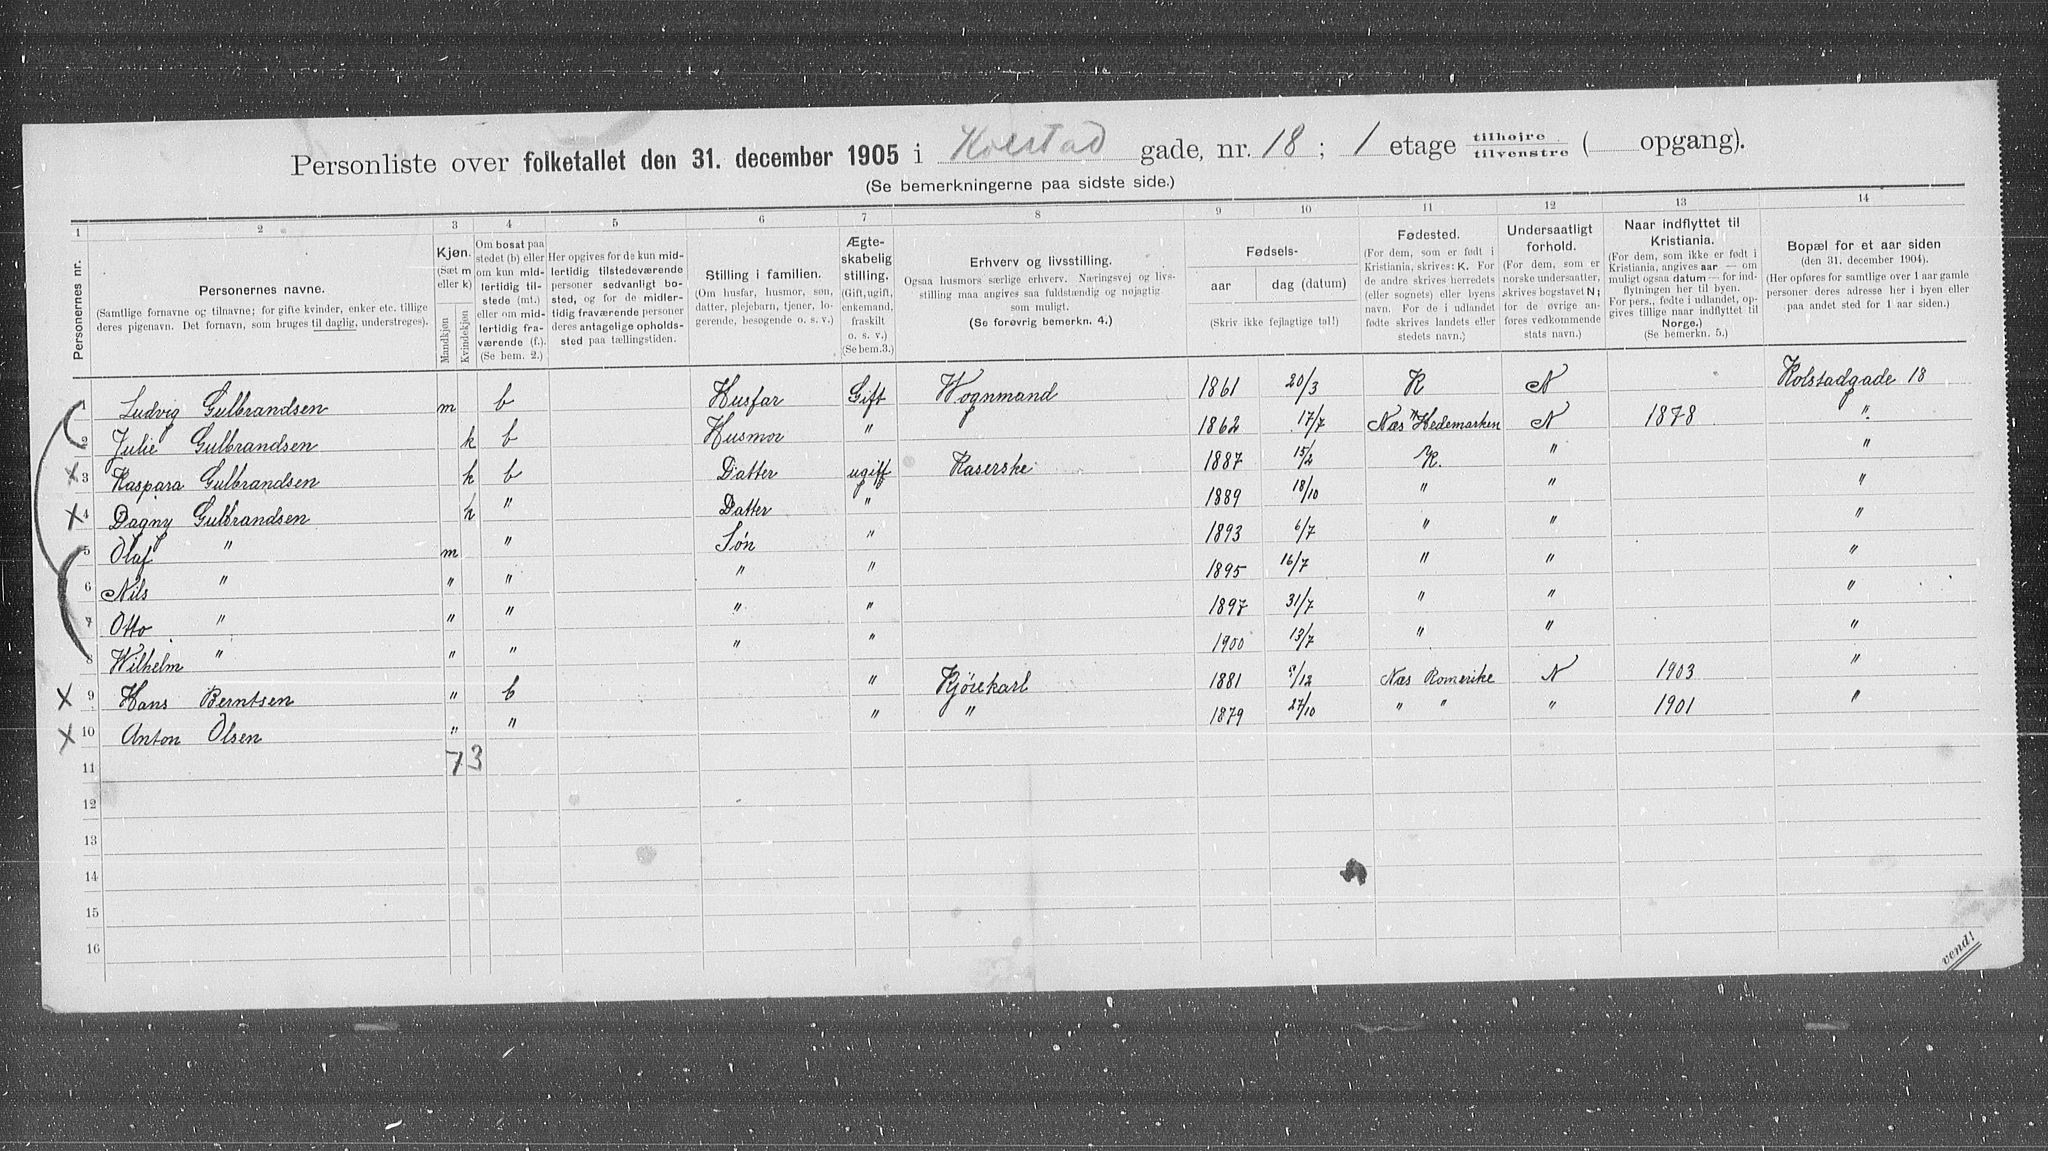 Personliste over folketallet den 31. december 1905 i Kolstad gade, nr. 18 ; 1 etage tilhøjre / tilvenstre ( opgang).
(Se bemerkningerne paa sidste side.)
1 2 3 4 5 6 7 8 9 10 11 12 13 14
Personernes nr.
Personernes navne.
(Samtlige fornavne og tilnavne; for gifte kvinder, enker etc. tillige deres pigenavn. Det fornavn, som bruges til daglig, understreges).
Kjøn.
(Sæt m eller k)
Mandkjøn
Kvindekjøn
Om bosat paa stedet (b) eller om kun midlertidig tilstede (mt.) eller om midlertidig fraværende (f.). (Se bem. 2.)
Her opgives for de kun midlertidig tilstedeværende personer sedvanligt bosted, og for de midlertidig fraværende personer deres antagelige opholdssted paa tællingstiden.
Stilling i familien.
(Om husfar, husmor, søn, datter, plejebarn, tjener, logerende, besøgende o. s. v.)
Ægteskabelig stilling.
(Gift, ugift, enkemand, fraskilt o. s. v.) (Se bem. 3.)
Erhverv og livsstilling.
Ogsaa husmors særlige erhverv. Næringsvej og livsstilling maa angives saa fuldstændig og nøjagtig som muligt.
(Se forøvrig bemerkn. 4.)
Fødsels-
aar
dag (datum)
(Skriv ikke fejlagtige tal!)
Fødested.
(For dem, som er født i Kristiania, skrives: K. For de andre skrives herredets (eller sognets) eller byens navn. For de i udlandet fødte skrives landets eller stedets navn.)
Undersaatligt forhold.
(For dem, som er norske undersaatter, skrives bogstavet N; for de øvrige anføres vedkommende stats navn.)
Naar indflyttet til Kristiania.
(For dem, som ikke er født i Kristiania, angives aar — om muligt ogsaa datum — for indflytningen her til byen. For pers., fødte i udlandet, opgives tillige naar indflyttet til Norge.)
(Se bemerkn. 5.)
Bopæl for et aar siden
(den 31. december 1904).
(Her opføres for samtlige over 1 aar gamle personer deres adresse her i byen eller paa andet sted for 1 aar siden.)
1 Ludvig Gulbrandsen m b Husfar Gift Vognmand 1861 20/3 K N Kolstadgade 18
2 Julie Gulbrandsen k b Husmor " 1862 17/7 Næs Hedemarken N 1878 "
X 3 Kaspara Gulbrandsen k b Datter ugift Kaserske 1887 15/2 K. " "
X 4 Dagny Gulbrandsen k " Datter " 1889 18/10 " " "
5 Olaf " m " Søn " 1893 6/7 " " "
6 Nils " " " " " 1895 16/7 " " "
7 Otto " " " " " 1897 31/7 " " "
8 Wilhelm " " " " " 1900 13/7 " " "
X 9 Hans Berntsen " b " Kjørekarl 1881 9/12 Næs Romerike N 1903 "
X 10 Anton Olsen " " " " 1879 27/10 " " " 1901 "
11 7 3
12
13
14
15
16
vend!